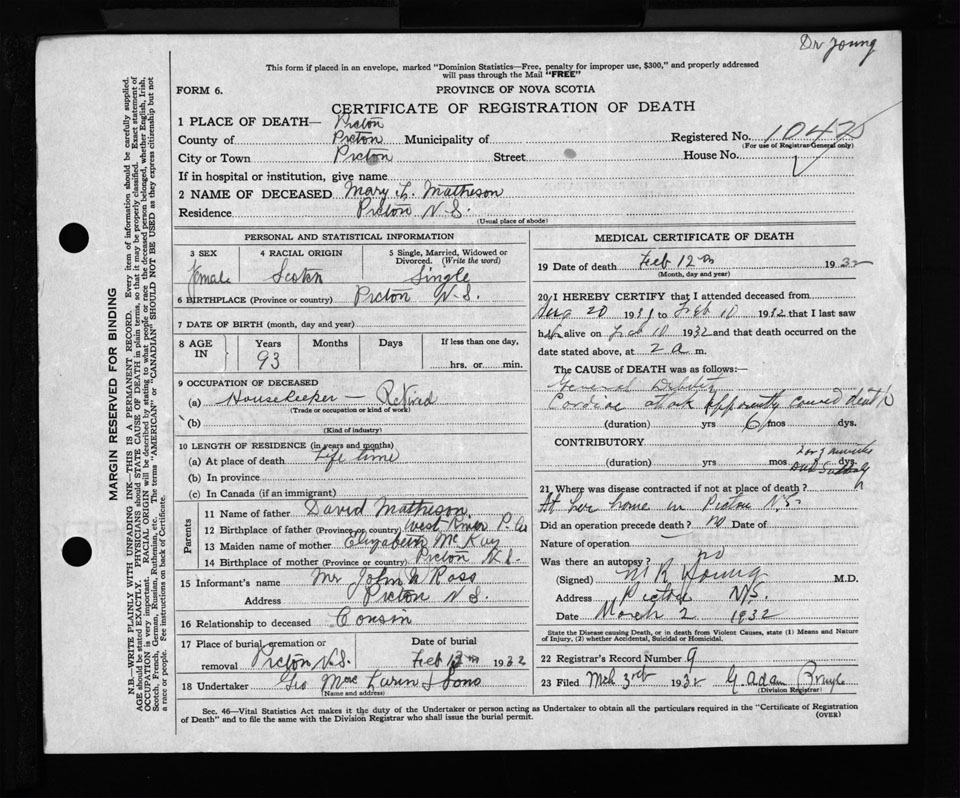 Dr Young
This form if placed in an envelope, marked "Dominion Statistics—Free, penalty for improper use, $300," and properly addressed
will pass through the Mail "FREE"
FORM 6.
PROVINCE OF NOVA SCOTIA
CERTIFICATE OF REGISTRATION OF DEATH
1 PLACE OF DEATH— Picton
County of Picton Municipality of Registered No. 10475
(For use of Registrar-General only)
City or Town Picton Street House No.
If in hospital or institution, give name
2 NAME OF DECEASED Mary L. Matheson
Residence Picton N.S.
(Usual place of abode)
MARGIN RESERVED FOR BINDING
N.B.—WRITE PLAINLY WITH UNFADING INK—THIS IS A PERMANENT RECORD. Every item of information should be carefully supplied.
AGE should be stated EXACTLY. PHYSICIANS should STATE CAUSE OF DEATH in plain terms, so that it may be properly classified. Exact statement of
OCCUPATION is very important. RACIAL ORIGIN will be described by stating to what people or race the deceased person belonged, whether English, Irish,
Scotch, French, German, Russian, Ruthenian, etc. The terms "AMERICAN" or "CANADIAN" SHOULD NOT BE USED as they express citizenship but not
a race or people. See instructions on back of Certificate.
PERSONAL AND STATISTICAL INFORMATION
3 SEX 4 RACIAL ORIGIN 5 Single, Married, Widowed or
Divorced. (Write the word)
female Scotch Single
6 BIRTHPLACE (Province or country) Picton N.S.
7 DATE OF BIRTH (month, day and year)
8 AGE IN Years Months Days If less than one day,
93 hrs. or min.
9 OCCUPATION OF DECEASED
(a) Housekeeper — Retired
(Trade or occupation or kind of work)
(b)
(Kind of industry)
10 LENGTH OF RESIDENCE (in years and months)
(a) At place of death Life time
(b) In province
(c) In Canada (if an immigrant)
Parents
11 Name of father David Matheson
12 Birthplace of father (Province or country) West River P. Co
13 Maiden name of mother Elizabeth McKay
14 Birthplace of mother (Province or country) Picton N.S.
15 Informant's name Mr John Ross
Address Picton N.S.
16 Relationship to deceased Cousin
17 Place of burial, cremation or Date of burial
removal Picton N.S. Feb 1932
18 Undertaker Geo Mac Laren & Sons
(Name and address)
MEDICAL CERTIFICATE OF DEATH
19 Date of death Feb 12th 1932
(Month, day and year)
20 I HEREBY CERTIFY that I attended deceased from
20 1931 to Feb 10 1932 that I last saw
her alive on Feb 10 1932 and that death occurred on the
date stated above, at 2 a m.
The CAUSE of DEATH was as follows:—
General Debility
Cardiac attack apparently caused death
(duration) yrs 6 mos dys.
CONTRIBUTORY
(duration) yrs mos dys.
2 or 3 minutes
Died suddenly
21 Where was disease contracted if not at place of death?
At her home in Picton N.S.
Did an operation precede death? no Date of
Nature of operation
Was there an autopsy? no
(Signed) M R Young M.D.
Address Picton N.S.
Date March 2 1932
State the Disease causing Death, or in death from Violent Causes, state (1) Means and Nature
of Injury, (2) whether Accidental, Suicidal or Homicidal.
22 Registrar's Record Number 9
23 Filed Mch 3rd 1932 G. Adam
(Division Registrar)
Sec. 46—Vital Statistics Act makes it the duty of the Undertaker or person acting as Undertaker to obtain all the particulars required in the "Certificate of Registration
of Death" and to file the same with the Division Registrar who shall issue the burial permit.
(OVER)